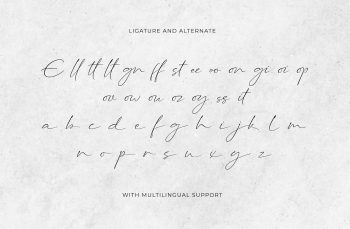 LIGATURE AND ALTERNATE
E ll tt lt gn ff st ee oo on gi oi op
ov ow ou oz oy ss it
a b c d e f g h i j k l m
n o p r s u x y z
WITH MULTILINGUAL SUPPORT